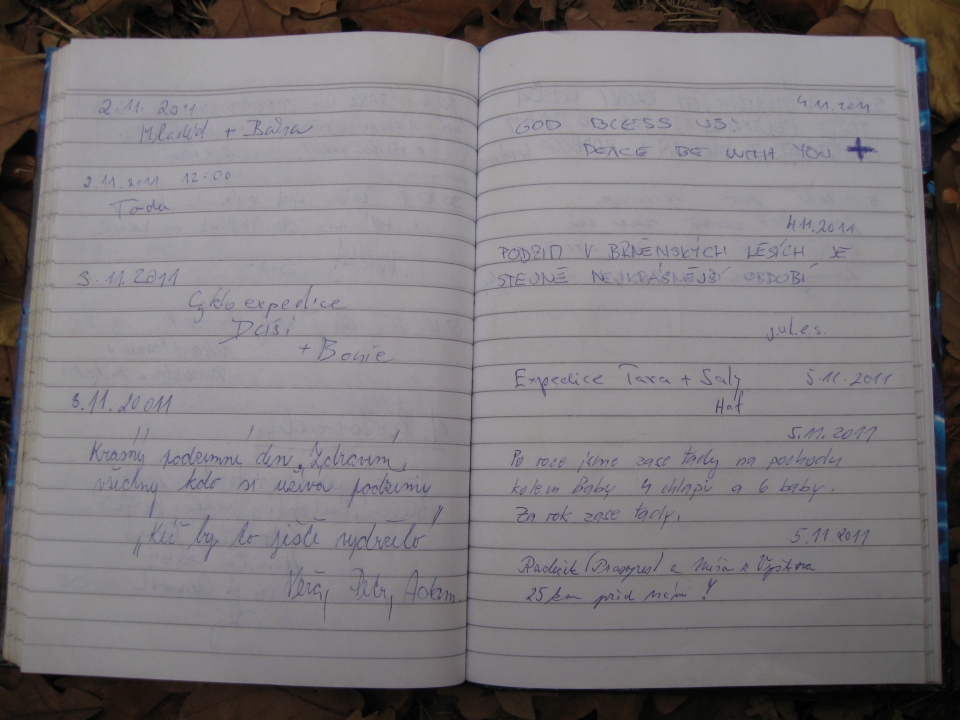 2.11. 2011
+
2.11.2011 12:00
Toda
3.11.2011
Cyklo expedice
Dáši
+ Bonie
3.11.20011
Krásný podzimní den, Zdravím,
všechny kdo si užívá podzimu
"Kéž by to ještě vydrželo"
Petr, Adam
4.11.2011
GOD BLESS US!
PEACE BE WITH YOU +
4.11.2011
PODZIM V BRNĚNSKÝCH LESÍCH JE
STEJNĚ NEJKRÁSNĚJŠÍ OBDOBÍ
j.ul.e.s.
Expedice Tara + Saly 5.11.2011
Haf
5.11.2011
Po roce jsme zase tady na pochodu
kolem Baby 4 chlapi a 6 baby.
Za rok zase tady.
5.11.2011
a z Vyškova
25 km před námi!